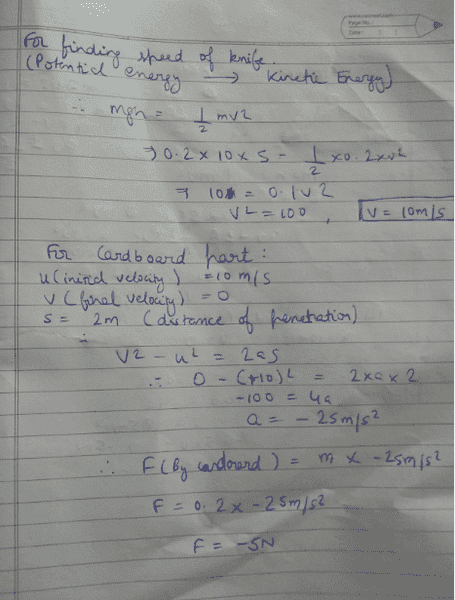 Page No.
Date
For finding speed of knife.
(Potential energy → Kinetic Energy)
∴ mgh = 1/2 mv2
⇒ 0.2 x 10 x 5 = 1/2 x 0.2xv2
⇒ 10 = 0.1v2
v2 = 100 , V = 10m/s
For Cardboard part :
u (initial velocity) = 10 m/s
v (final velocity) = 0
s = 2m (distance of penetration)
∴
V2 - u2 = 2as
∴ 0 - (+10)2 = 2xax2
-100 = 4a
a = - 25m/s2
∴ F (By cardoard) = m x -25m/s2
F = 0.2 x -25m/s2
F = -5N